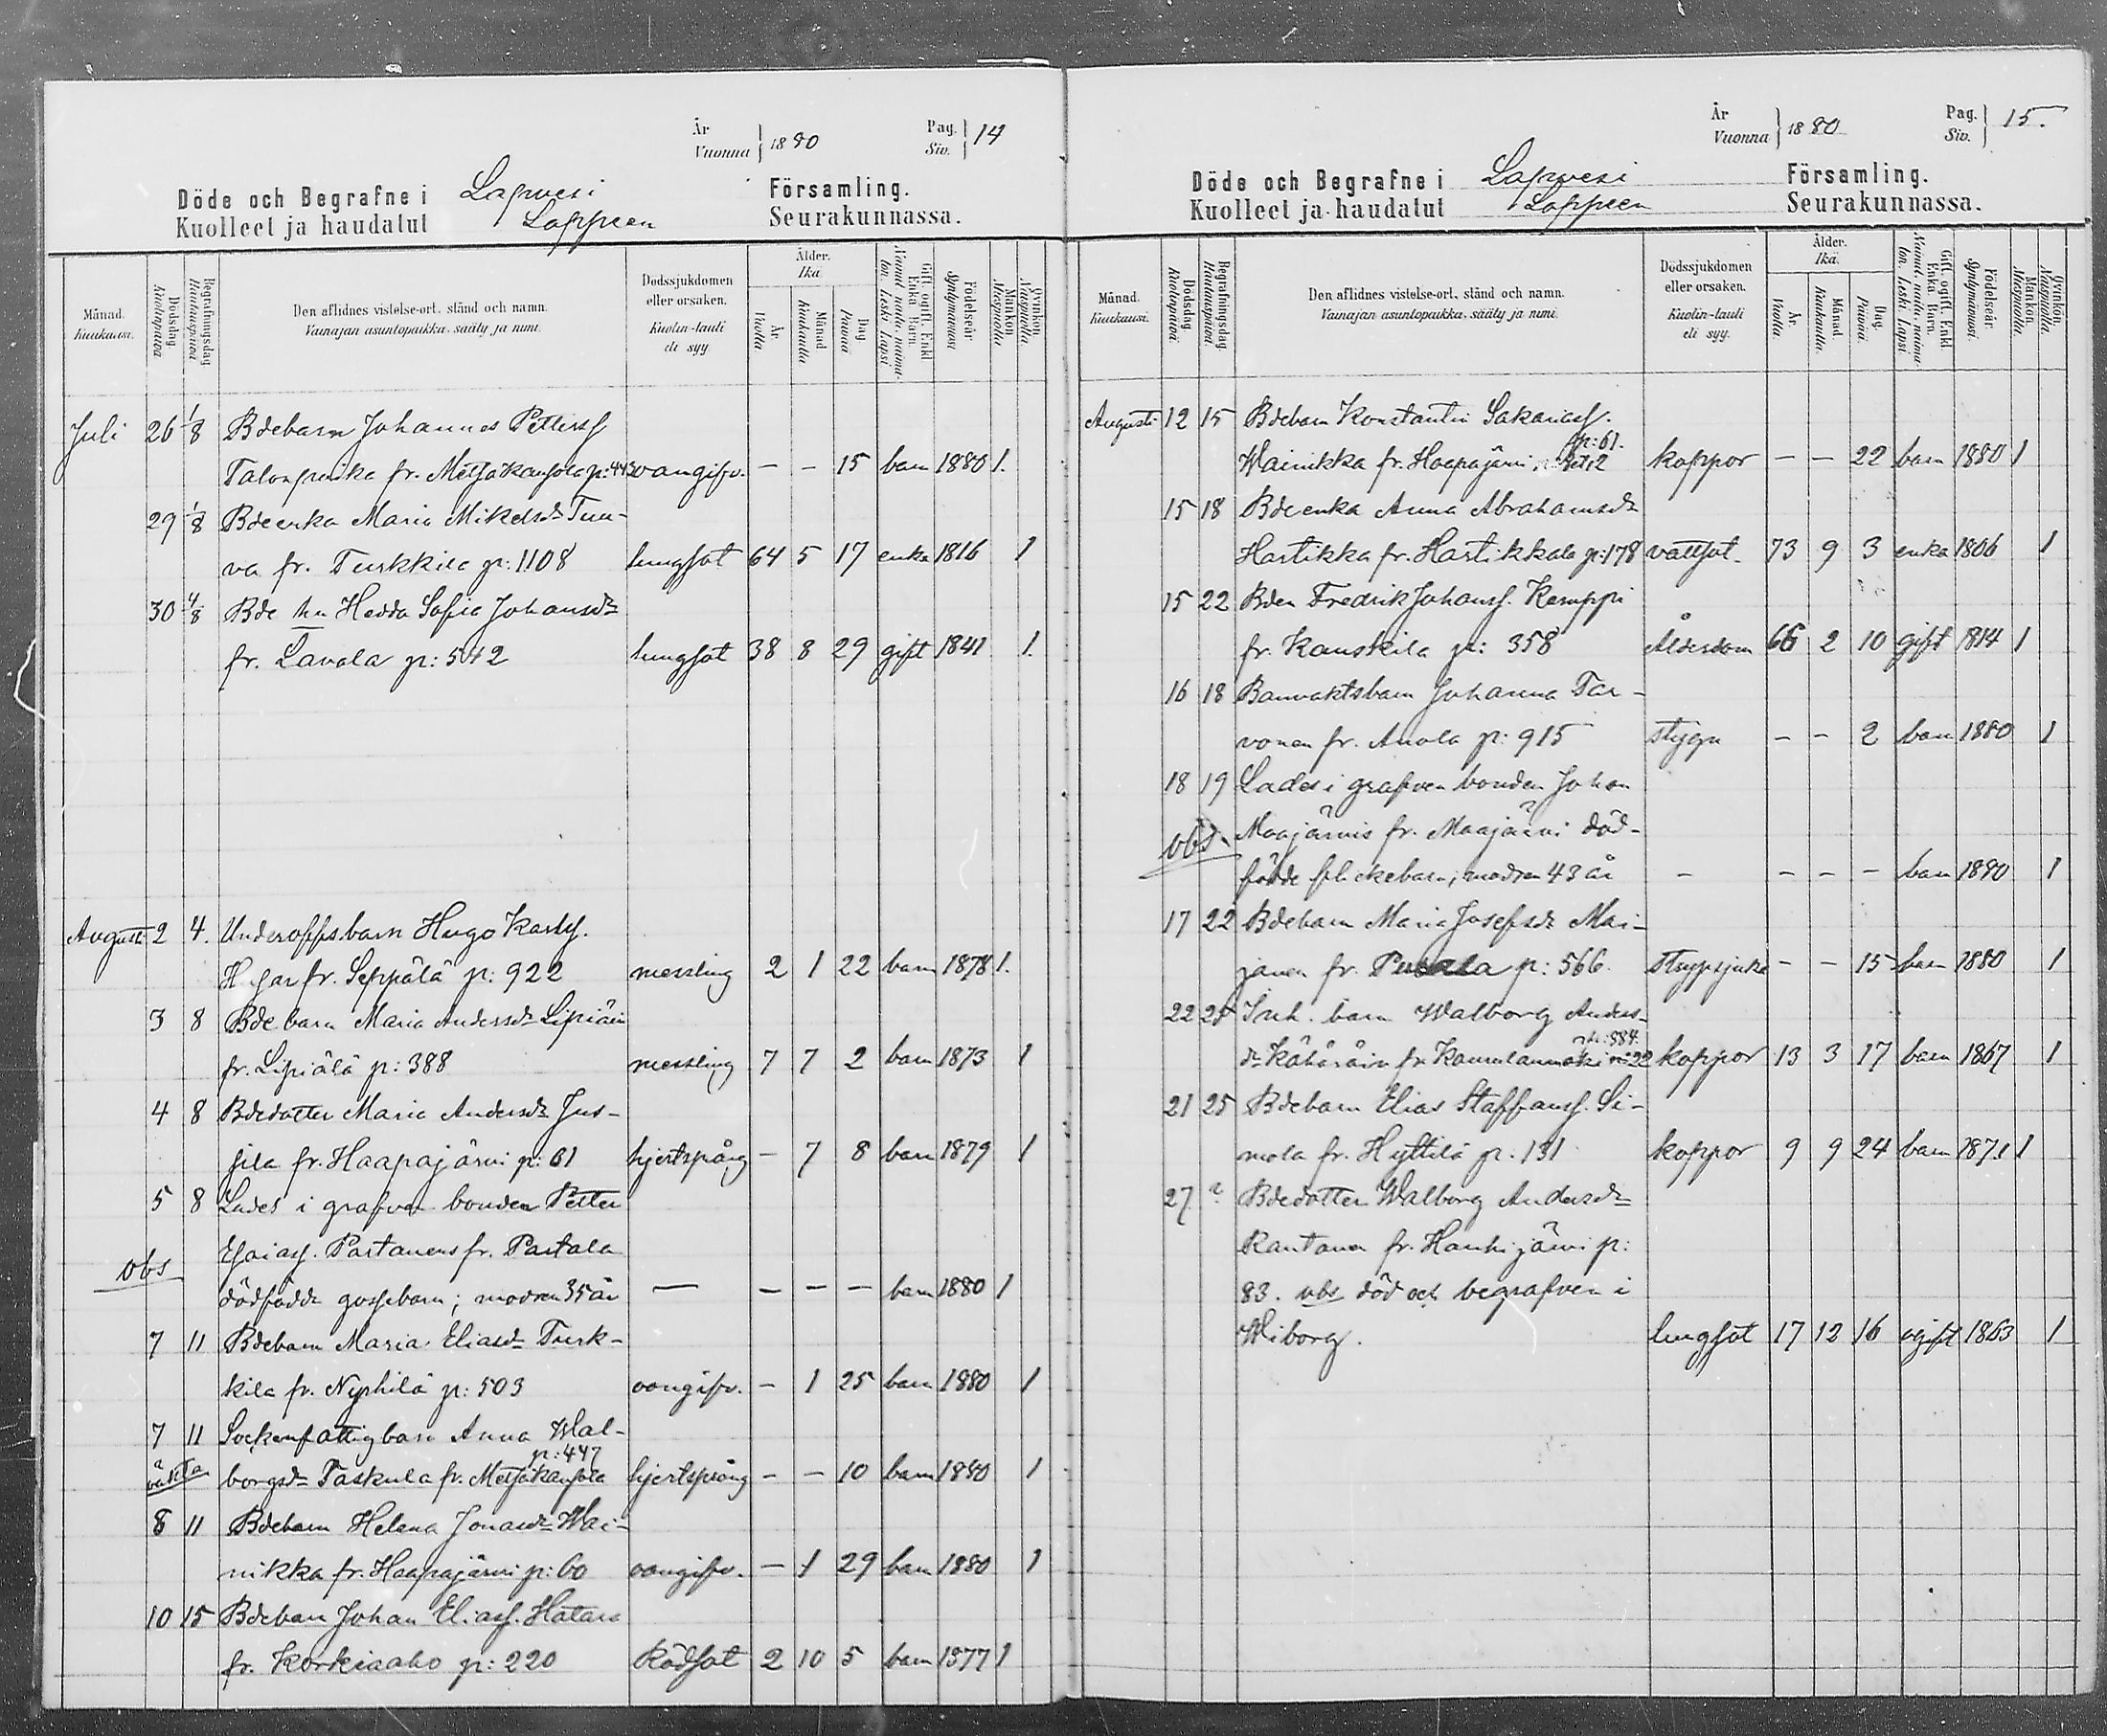 År
Vuonna } 1880
Pag.
Siv. } 14
Döde och Begrafne i Lapvesi Församling.
Kuolleet ja haudatut Lappeen Seurakunnassa.
Månad. Kuukausi.
Dödsdag. Kuolinpäivä
Begrafningsdag Hautauspäivä
Den aflidnes vistelse-ort, stånd och namn.
Vainajan asuntopaikka, sääty ja nimi.
Dödssjukdomen eller orsaken.
Kuolin-tauti eli syy
Ålder.
Ikä.
År. Vuotta
Månad Kuukautta
Dag Päivää
Gift, ogift, Enkl. Enka, Barn.
Nainut, naitu, naimaton, Leski, Lapsi.
Födelseår Syntymävuosi
Mankön. Miespuolta
Qvinkön. Naispuolta
Juli 26 1/8 Bdebarn Johannes Petterss
fr. Metsäkansola p: 443 vangifv. – – 15 barn 1880 1.
29 1/8 Bdeenka Maria Mikelsdr Tuu-
va fr. Turkkila p: 1108 lungsot 64 5 17 enka 1816 1
30 4/8 Bde hu Hedda Sofia Johansdr
fr. Lavola p: 542 lungsot 38 8 29 gift 1841 1.
Augusti 2 4. Underoffs.barn Hugo Karlss.
fr. Seppälä p: 922 messling 2 1 22 barn 1878 1.
3 8 Bde barn Maria Andersdr Lipiäin
fr. Lipiälä p: 388 messling 7 7 2 barn 1873 1
4 8 Bdedotter Maria Andersdr Jus-
sila fr. Haapajärvi p: 61 hjertspång – 7 8 barn 1879 1
5 8 Lades i grafven bonden Petter
Esaiass. Partanens fr. Partala
obs
dödfödde gossebarn; modren 35 år — – – – barn 1880 1
7 11 Bdebarn Maria Eliasdr Turk-
kila fr. Nyrhilä p: 503 vangifv. – 1 25 barn 1880 1
7 11 Sockenfattigbarn Anna Wal-
p: 447
borgsdr Taskula fr. Metsäkansola hjertspång – – 10 barn 1880 1
8 11 Bdebarn Helena Jonasdr Wai-
nikka fr. Haapajärvi p: 60 vangifv. – 1 29 barn 1880 1
10 15 Bdebarn Johan Eliass. Hatara
fr. Korkiaaho p: 220 Rödsot 2 10 5 barn 1877 1
År
Vuonna } 1880
Pag.
Siv. } 15.
Döde och Begrafne i Lapvesi Församling.
Kuolleet ja haudatut Lappeen Seurakunnassa.
Månad. Kuukausi.
Dödsdag. Kuolinpäivä.
Begrafningsdag. Hautauspäivä.
Den aflidnes vistelse-ort, stånd och namn.
Vainajan asuntopaikka, sääty ja nimi.
Dödssjukdomen eller orsaken.
Kuolin-tauti eli syy.
Ålder.
Ikä.
År. Vuotta
Månad. Kuukautta.
Dag. Päivää.
Gift, ogift, Enkl. Enka, Barn.
Nainut, naitu, naimaton, Leski, Lapsi.
Födelseår. Syntymävuosi.
Mankön. Miespuolta.
Qvinkön. Naispuolta.
Augusti 12 15 Bdebarn Konstantin Sakariass.
p: 61.
Wainikka fr. Haapajärvi koppor – – 22 barn 1880 1
15 18 Bdeenka Anna Abrahamsdr
Hartikka fr. Hartikkala p: 178 vattsot. 73 9 3 enka 1806 1
15 22 Bden Fredrik Johanss. Kemppi
fr. Kauskila p: 358 Ålderdom 66 2 10 gift 1814 1
16 18 Banvaktsbarn Johanna Tar-
vonen fr. Anola p: 915 stygn – – 2 barn 1880 1
18 19 Lades i grafven bonden Johan
obs. Maajärvis fr. Maajärvi död-
födde flickebarn; modren 43 år – – – – barn 1880 1
17 22 Bdebarn Maria Josefsdr Mai-
janen fr. p: 566. strypsjuka – – 15 barn 1880 1
22 25 Inh. barn Walborg Anders-
p: 884.
dr Kähäräin fr. koppor 13 3 17 barn 1867 1
21 25 Bdebarn Elias Staffanss. Si-
mola fr. Hyttilä p. 131 koppor 9 9 24 barn 1871 1
27 ? Bdedotter Walborg Andersdr
Rantanen fr. Hanhijärvi p:
83. obs död och begrafven i
Wiborg. lungsot 17 12 16 ogift 1863 1